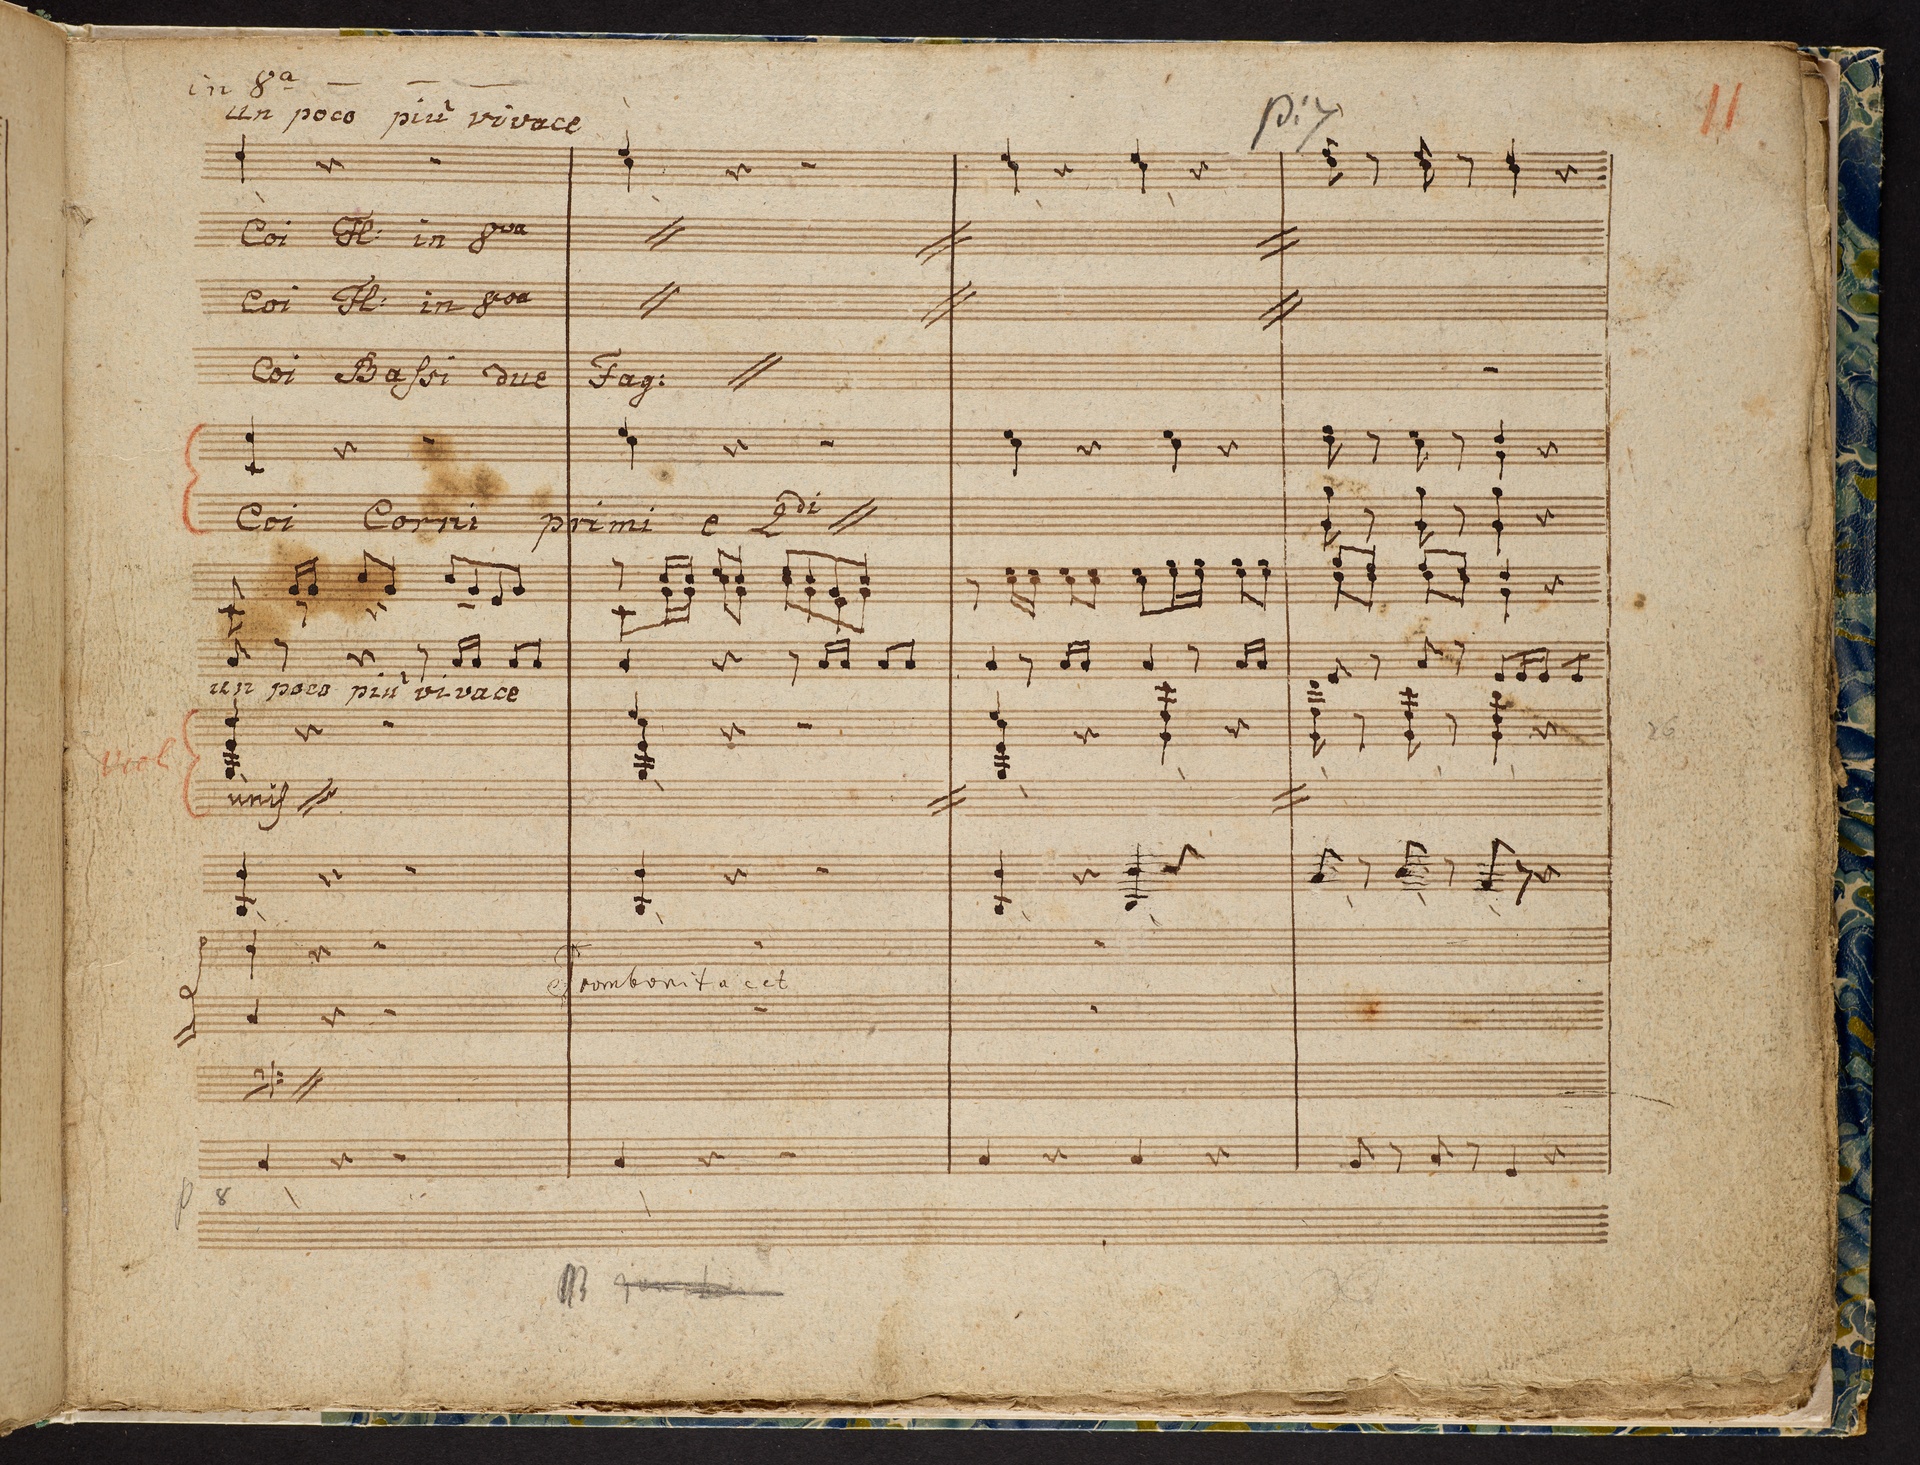 in 8a
un poco più vivace
p: 7
11
Coi Fl: in 8va
Coi Fl: in 8va
Coi Bassi due Fag:
Coi Corni primi e 2di
un poco più vivace
Viol
26
unis
Tromboni tacet
p 8